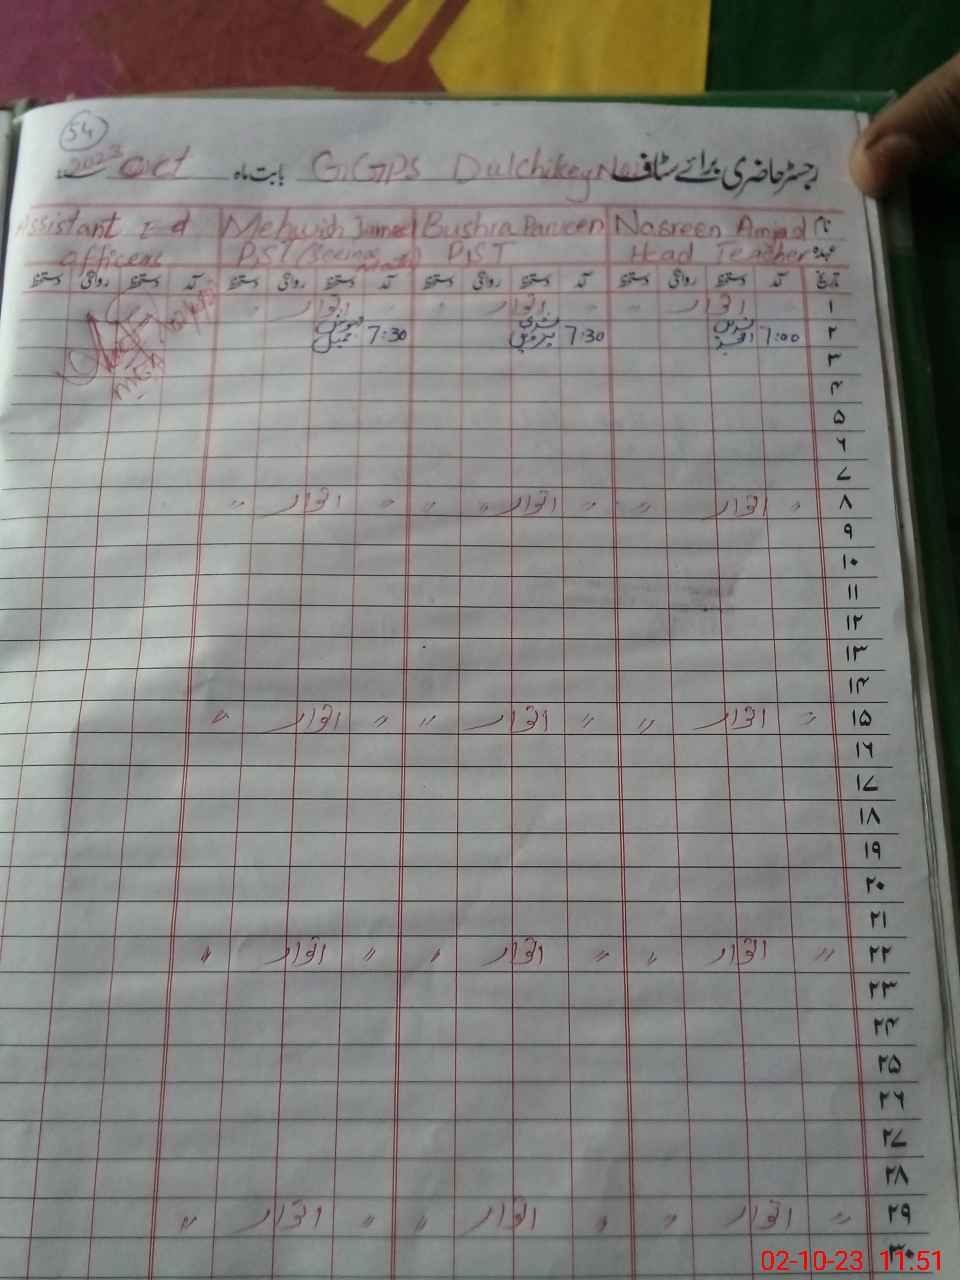 54
رجسٹر حاضری برائے سٹاف G.GPS Dulchikey بابت ماہ Oct 2023
نام Nasreen Amjad Bushra Parveen Mehwish Jameel Assistant Ed
عہدہ Head Teacher PST PST officer
تاریخ آمد دستخط روانگی دستخط آمد دستخط روانگی دستخط آمد دستخط روانگی دستخط آمد دستخط روانگی دستخط
۱ اتوار اتوار اتوار
۲ 7:00 نسرین امجد 7:30 بشریٰ پروین 7:30 مہوش جمیل
۳
۴
۵
۶
۷
۸ " اتوار " " اتوار " " اتوار "
۹
۱۰
۱۱
۱۲
۱۳
۱۴
۱۵ " اتوار " " اتوار " " اتوار "
۱۶
۱۷
۱۸
۱۹
۲۰
۲۱
۲۲ " اتوار " " اتوار " " اتوار "
۲۳
۲۴
۲۵
۲۶
۲۷
۲۸
۲۹ " اتوار " " اتوار " " اتوار "
۳۰
02-10-23 11:51